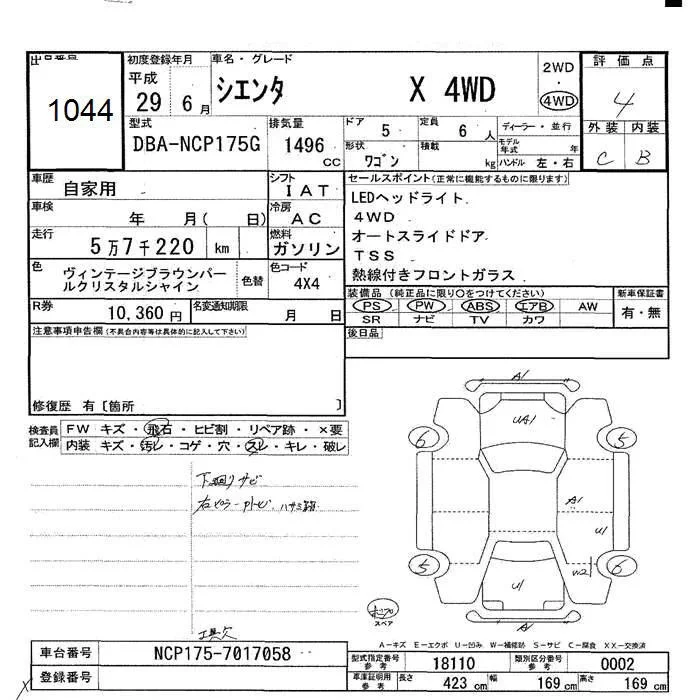 出品番号
1044
初度登録年月
平成
29 6 月
車名・グレード
シエンタ X 4WD
2WD
・
4WD
評価点
4
外装 内装
C B
型式
DBA-NCP175G
排気量
1496 cc
ドア 5
定員 6 人
ディーラー・並行
形状 ワゴン
積載 kg
モデル年式 年
ハンドル 左・右
車歴
自家用
シフト
IAT
車検
年 月( 日)
冷房
AC
走行
5万7千220 km
燃料
ガソリン
色
ヴィンテージブラウンパー
ルクリスタルシャイン
色替
色コード
4X4
R券
10,360 円
名変通知期限
月 日
セールスポイント(正常に機能するものに限ります)
LEDヘッドライト
4WD
オートスライドドア
TSS
熱線付きフロントガラス
装備品 (純正品に限り○をつけてください)
PS PW ABS エアB AW
SR ナビ TV カワ
新車保証書
有・無
後日品
注意事項申告欄(不具合内容等は具体的に記入して下さい)
修復歴 有 [箇所 ]
検査員
記入欄
FW キズ・飛石・ヒビ割・リペア跡・×要
内装 キズ・汚レ・コゲ・穴・スレ・キレ・破レ
下廻りサビ
A1
UA1
6 5
A1
U1
W2
5 6
U1
A1
スペア
工具欠
A-キズ E-エクボ U-凹み W-補修跡 S-サビ C-腐食 XX-交換済
車台番号
NCP175-7017058
登録番号
型式指定番号
参考
18110
類別区分番号
参考
0002
車庫証明用
参考
長さ 423 cm 幅 169 cm 高さ 169 cm
X